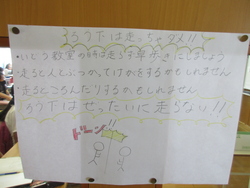 ろう下は走っちゃダメ!!
・いどう教室の時は走らず早歩きにしましょう
・走ると人とぶつかってけがをするかもしれません
・走るところんだりするかもしれません
ろう下はぜったいに走らない!!
ドーン!!